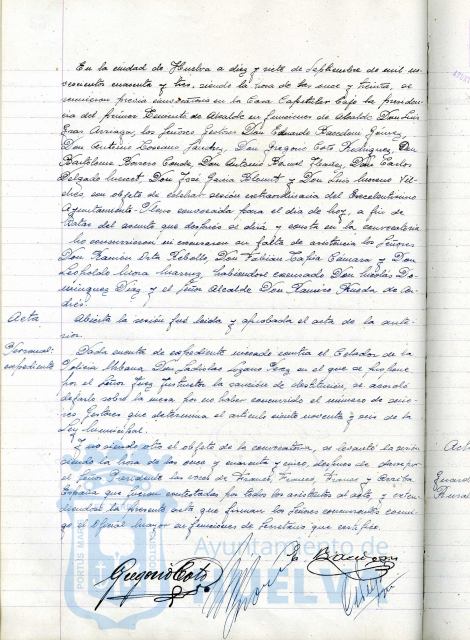 En la ciudad de Huelva a diez y siete de Septiembre de mil no-
vecientos cuarenta y tres, siendo la hora de las once y treinta, se
reunieron previa convocatoria en la Casa Capitular bajo la presiden-
cia del primer Teniente de Alcalde en funciones de Alcalde Don Luis
Arriaga, los Señores Gestores Don Eduardo Bacedoni Gómez,
Don Centeno Sánchez, Don Gregorio Coto Rodríguez, Don
Bartolomé Borrero Conde, Don Antonio Ibañez, Don Carlos
Delgado Don José García Don Luis Moreno Vél-
chez con objeto de celebrar sesión extraordinaria del Excelentísimo
Ayuntamiento Pleno convocada para el día de hoy, a fin de
tratar del asunto que después se dirá y consta en la convocatoria
No concurrieron ni excusaron su falta de asistencia los Señores
Don Ramón Orta Rebollo, Don Fabián Tapia Cámara y Don
Leopoldo Mora habiéndose excusado Don Nicolás Do-
mínguez Díaz y el Señor Alcalde Don Ramiro Rueda de An-
drés.
Acta
Abierta la sesión fué leída y aprobada el acta de la ante-
rior.
Personal:
expediente
Dada cuenta de expediente incoado contra el Celador de la
Policía Urbana Don Ladislao Lozano en el que se propone
por el Señor Juez Instructor la sanción de destitución, se acordó
dejarlo sobre la mesa por no haber concurrido el número de seño-
res Gestores que determina el artículo ciento noventa y seis de la
Ley Municipal.
Y no siendo otro el objeto de la convocatoria, se levantó la sesión
siendo la hora de las once y cuarenta y cinco, después de darse por
el Señor Presidente las voces de Franco, Franco, Franco y Arriba
España que fueron contestadas por todos los asistentes al acto, y exten-
diéndose la presente acta que firman los Señores concurrentes conmi-
go el Oficial Mayor en funciones de Secretario que certifico.
Acta
Guard
Rura
Gregorio Coto
E. Bacedoni
PORTUS MAR
Ayuntamiento de
HUELVA